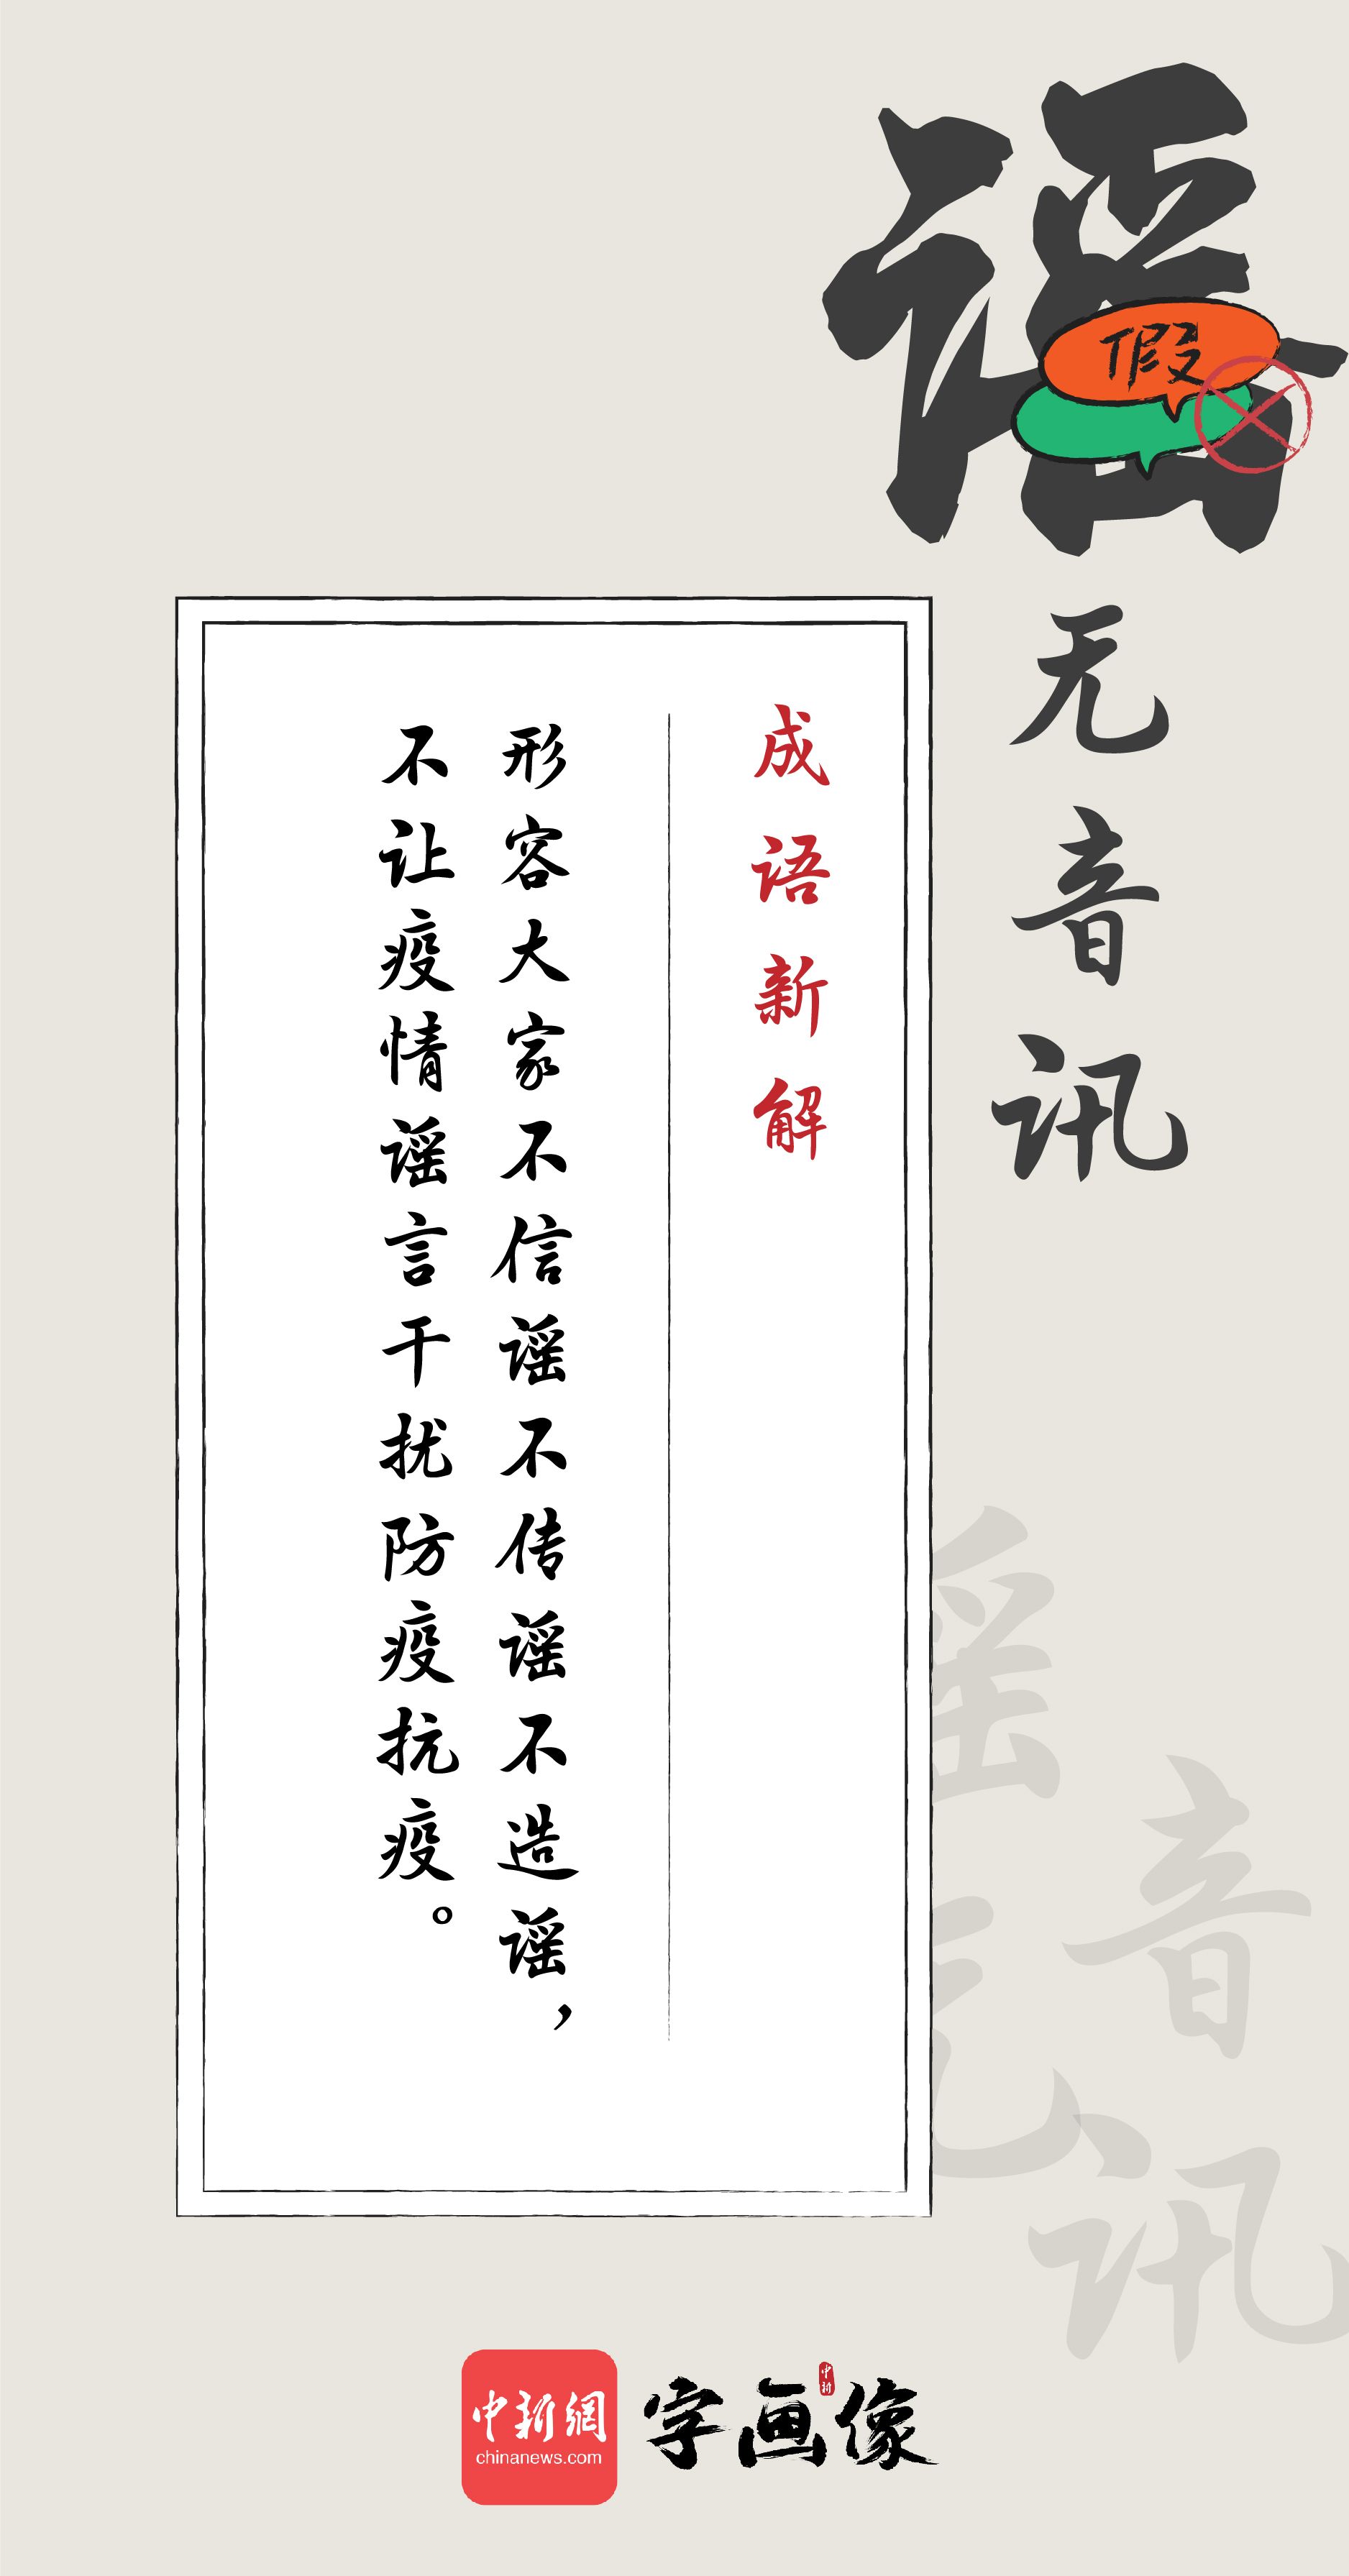 谣无音讯
假
成语新解
形容大家不信谣不传谣不造谣，
不让疫情谣言干扰防疫抗疫。
谣无音讯
中新網
chinanews.com
字画像
中新